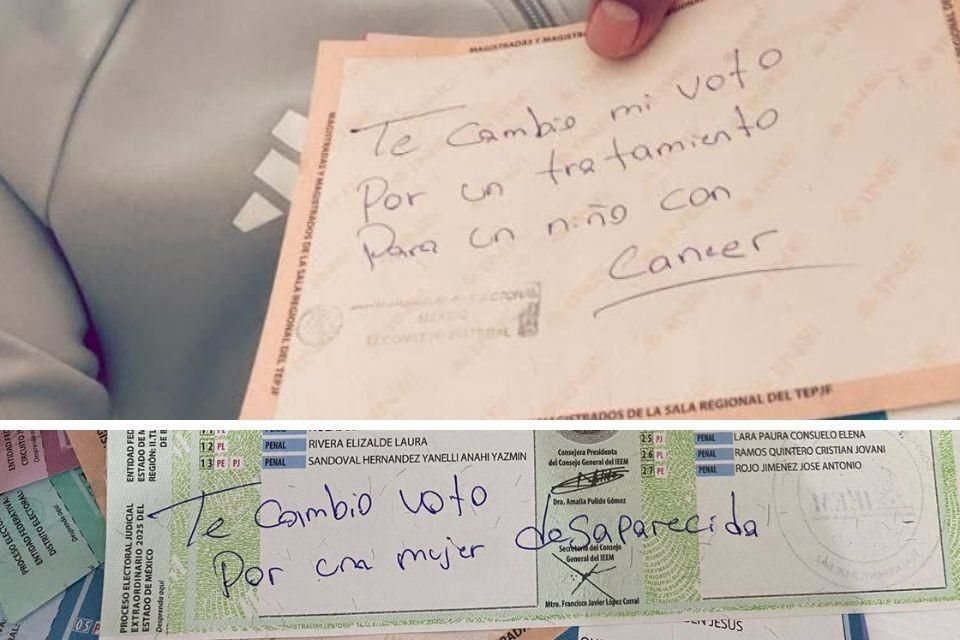 MAGISTRADAS Y MAGISTR
Te cambio mi voto
Por un tratamiento
Para un niño con
Cancer
MAGISTRADAS Y MAGISTRADOS DE LA SALA REGIONAL DEL TEPJF
ELECTORAL
MÉXICO
CONSEJO DISTRITAL
MAGISTRADOS DE LA SALA REGIONAL DEL TEPJF
PROCESO ELECTORAL JUDICIAL
EXTRAORDINARIO 2025 DEL
ESTADO DE MÉXICO
Desprenda aquí
12 PL PENAL RIVERA ELIZALDE LAURA
13 PE PJ PENAL SANDOVAL HERNANDEZ YANELLI ANAHI YAZMIN
Te cambio voto
Por una mujer desaparecida
Consejera Presidenta
del Consejo General del IEEM
Dra. Amalia Pulido Gómez
Secretario del Consejo
General del IEEM
Mtro. Francisco Javier López Corral
25 PJ PENAL LARA PAURA CONSUELO ELENA
26 PL PENAL RAMOS QUINTERO CRISTIAN JOVANI
27 PE PENAL ROJO JIMENEZ JOSE ANTONIO
IEEM
DISTRITO ELECTORAL
05 P
EN JESUS